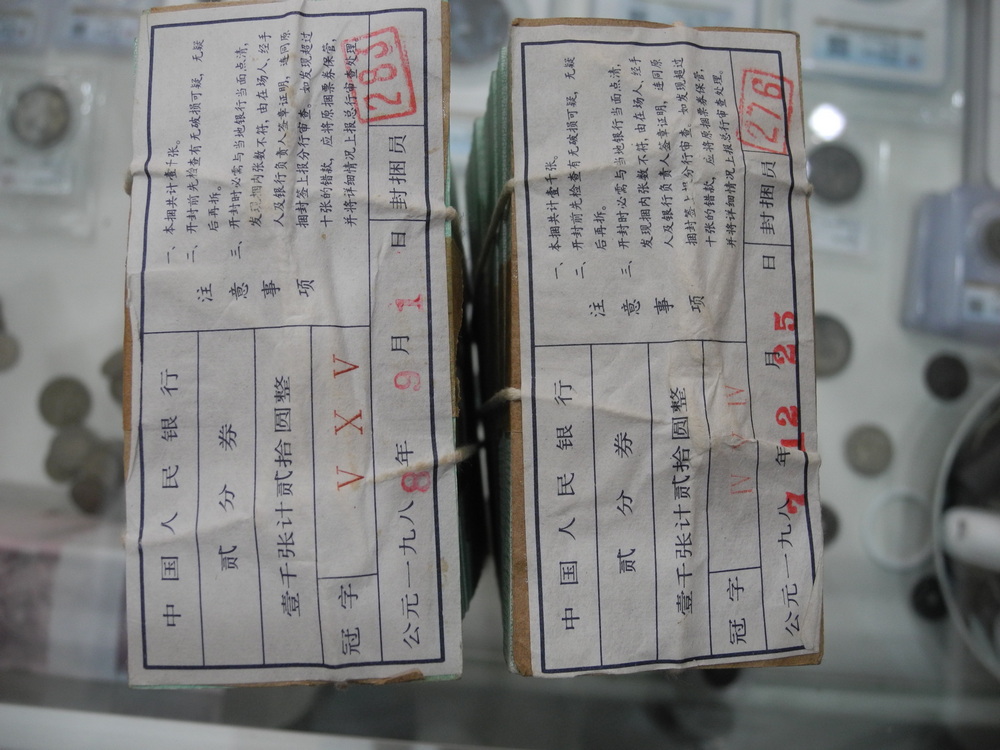 中国人民银行
贰分券
壹千张计贰拾圆整
冠字 V X V
注意事项
一、本捆共计壹千张。
二、开封前先检查有无破损可疑，无疑
后再拆。
三、开封时必需与当地银行当面点清，
发现捆内张数不符，由在场人、经手
人及银行负责人签章证明，连同原
捆封签上报分行审查。如发现超过
十张的错款，应将原捆票券保管，
并将详细情况上报总行审查处理。
公元一九八8年9月1日 封捆员 289
中国人民银行
贰分券
壹千张计贰拾圆整
冠字 IV IV
注意事项
一、本捆共计壹千张。
二、开封前先检查有无破损可疑，无疑
后再拆。
三、开封时必需与当地银行当面点清，
发现捆内张数不符，由在场人、经手
人及银行负责人签章证明，连同原
捆封签上报分行审查。如发现超过
十张的错款，应将原捆票券保管，
并将详细情况上报总行审查处理。
公元一九八7年12月25日 封捆员 276